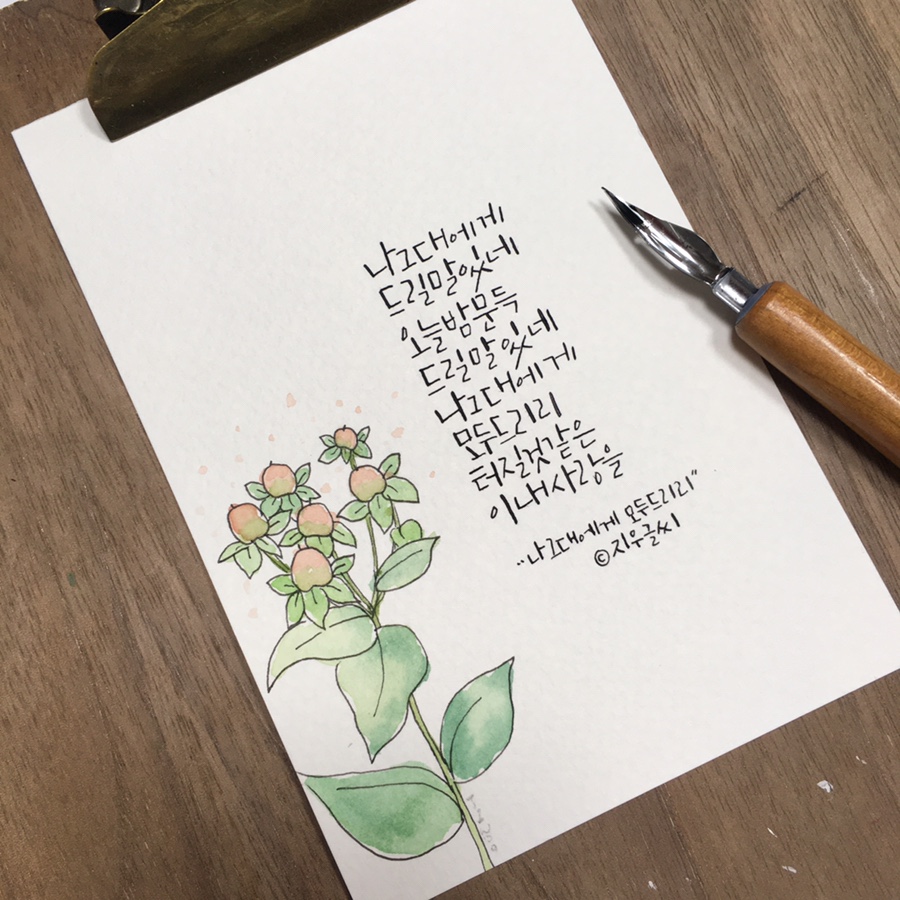 나그대에게
드릴말있네
오늘밤문득
드릴말있네
나그대에게
모두드리리
터질것같은
이내사랑을
"나그대에게 모두드리리"
©지우글씨